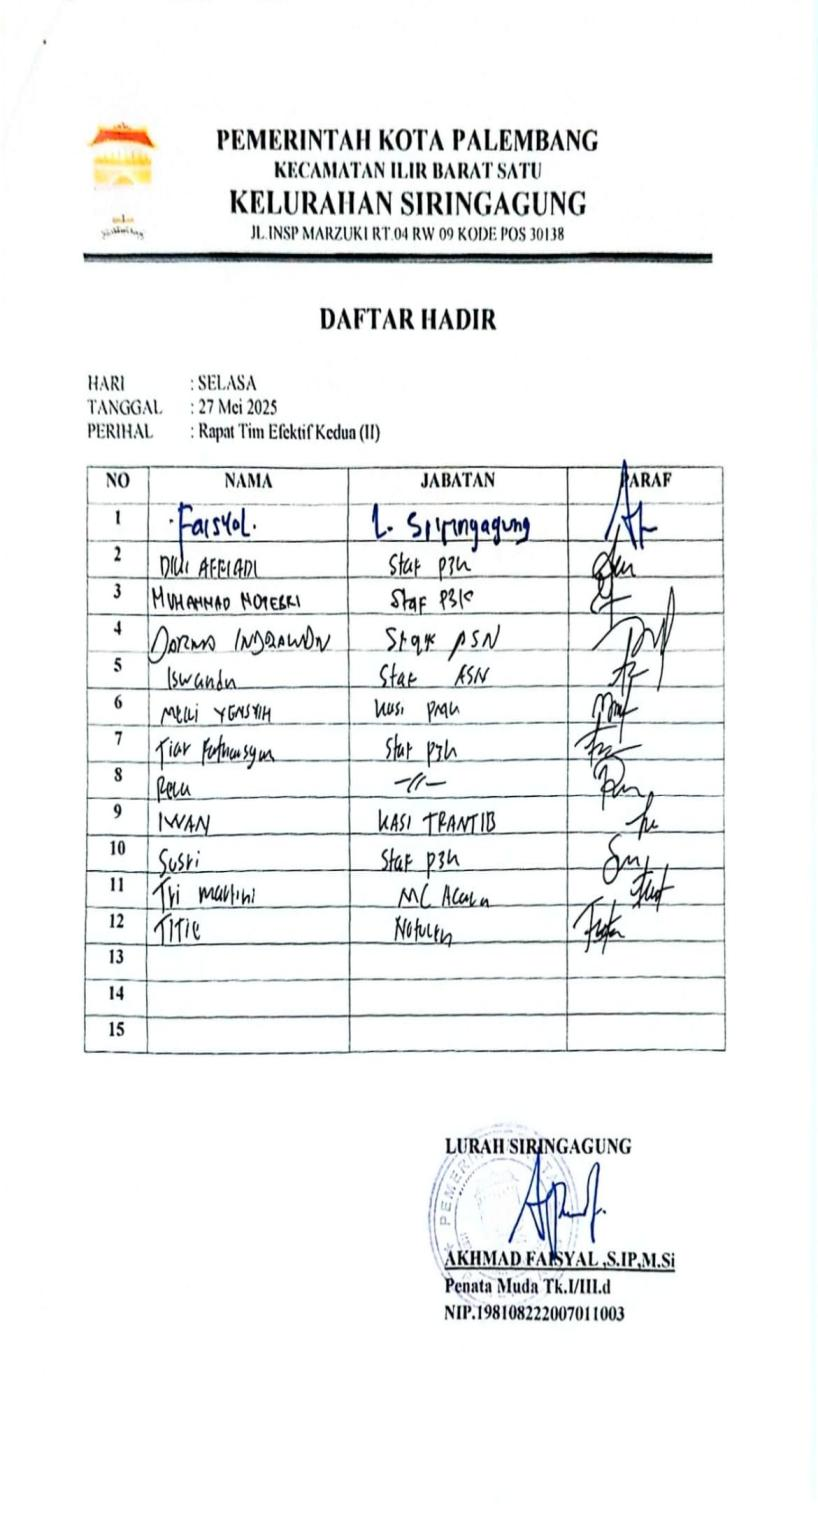 PEMERINTAH KOTA PALEMBANG
KECAMATAN ILIR BARAT SATU
KELURAHAN SIRINGAGUNG
JL.INSP MARZUKI RT.04 RW 09 KODE POS 30138
DAFTAR HADIR
HARI : SELASA
TANGGAL : 27 Mei 2025
PERIHAL : Rapat Tim Efektif Kedua (II)
NO NAMA JABATAN PARAF
1 Faisyol. L. Siringagung
2 Staf p3k
3 MUHAMMAD Staf P3K
4 INDRAWAN
5 Staf ASN
6
7 Tiar Staf p3k
8 -//-
9 IWAN KASI TRANTIB
10 Susri Staf p3k
11 Tri martini MC Acara
12 TITIE Notulen
13
14
15
LURAH SIRINGAGUNG
AKHMAD FAISYAL ,S.IP,M.Si
Penata Muda Tk.I/III.d
NIP.198108222007011003